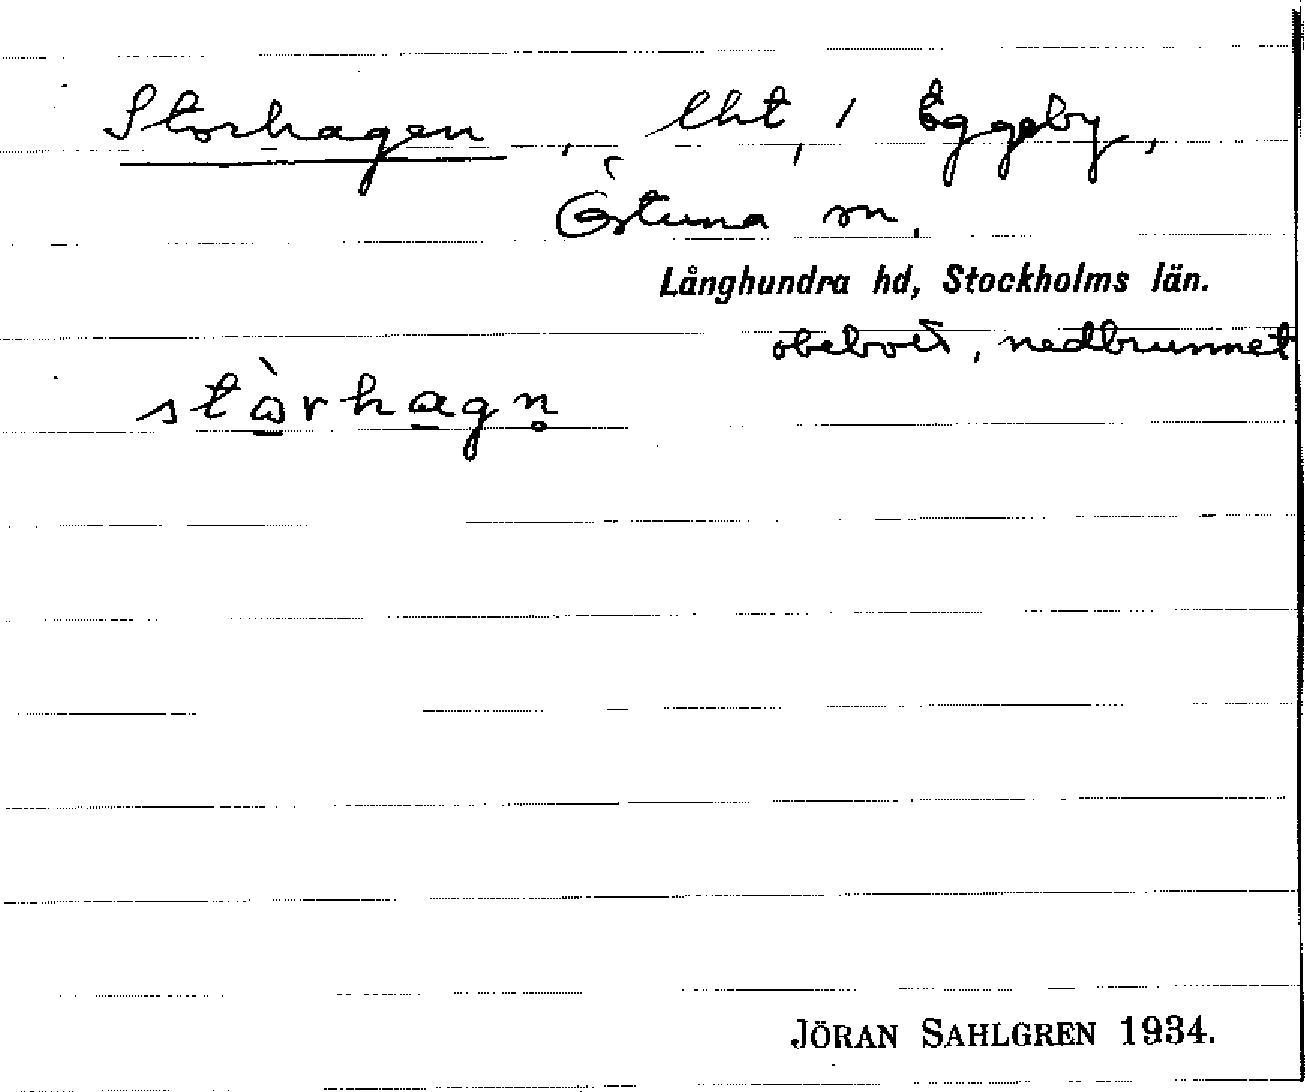 Storhagen, lht, i Eggeby,
Östuna sn.
Långhundra hd, Stockholms län.
obebott, nedbrunnet
stòrhagn̥
JÖRAN SAHLGREN 1934.